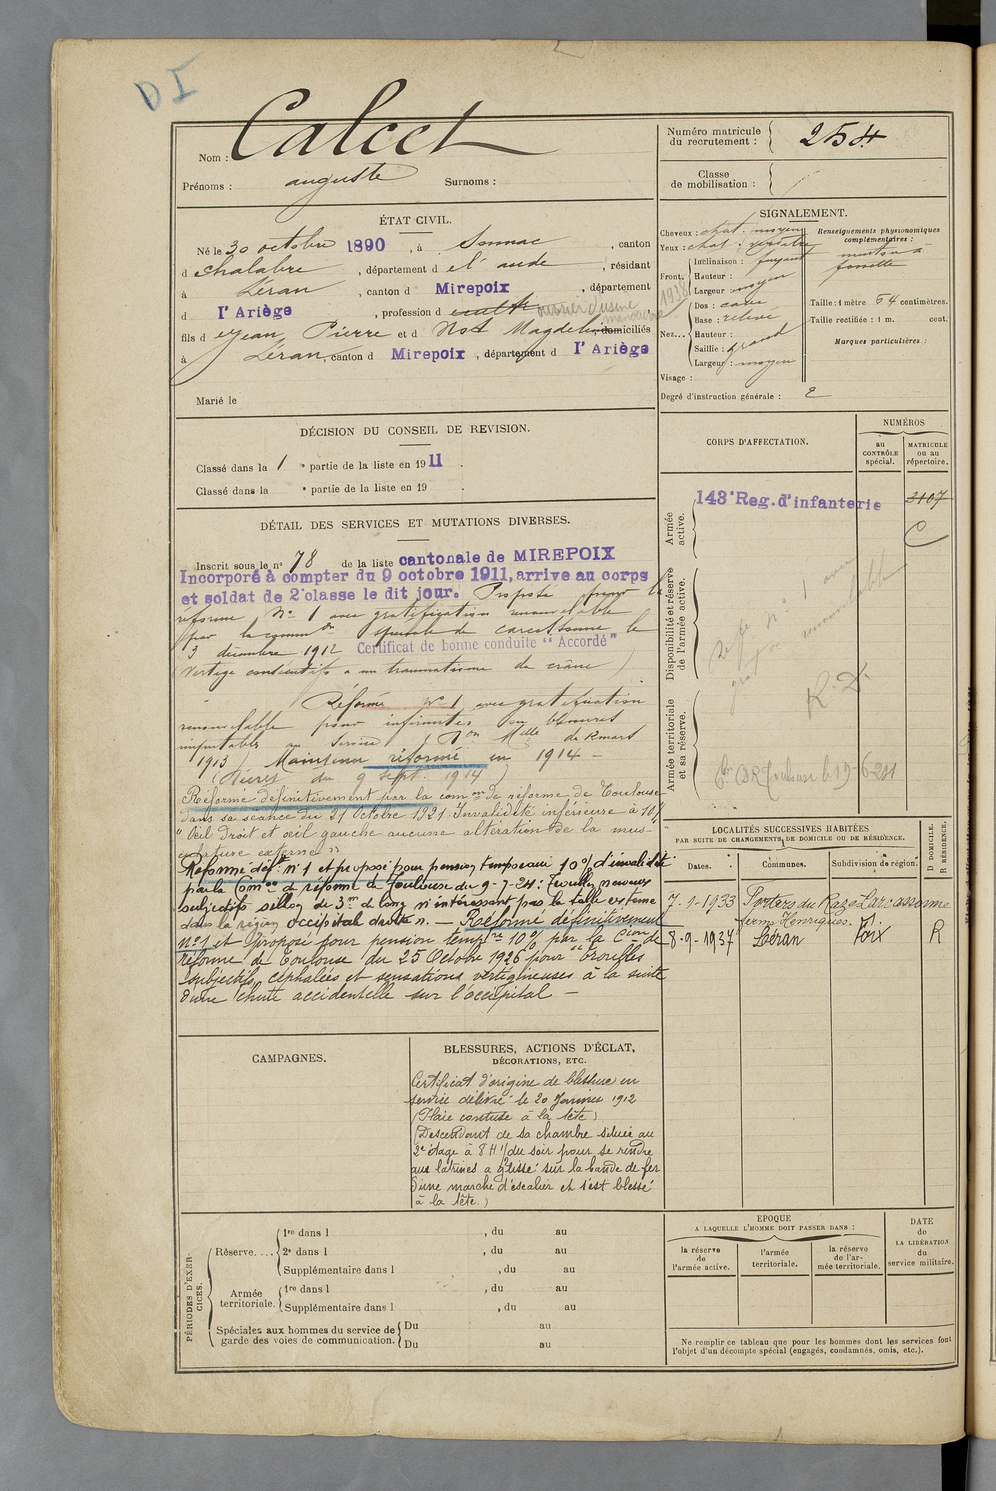 D I
Nom : Calcet
Prénoms : auguste Surnoms :
Numéro matricule du recrutement : 254
Classe de mobilisation :
ÉTAT CIVIL.
Né le 30 octobre 1890, à Sonnac, canton
d Chalabre, département d el' aude, résidant
à Léran, canton d Mirepoix, département
d l'Ariège, profession d cult ouvrier d'usine 1938
manœuvre
fils d e Jean Pierre et d Not Magdel domiciliés
à Léran, canton d Mirepoix, département d l'Ariège
Marié le
SIGNALEMENT.
Cheveux : chat. moyen
Yeux : chat. verdatre
Front. Inclinaison : fuyant
Hauteur :
Largeur moyen
Nez... Dos : cave
Base : relevé
Hauteur :
Saillie : grand
Largeur : moyen
Visage :
Renseignements physionomiques complémentaires :
menton à
fossette
Taille : 1 mètre 64 centimètres.
Taille rectifiée : 1 m. cent.
Marques particulières :
Degré d'instruction générale : 2
DÉCISION DU CONSEIL DE REVISION.
Classé dans la 1 e partie de la liste en 1911.
Classé dans la e partie de la liste en 19 .
DÉTAIL DES SERVICES ET MUTATIONS DIVERSES.
Inscrit sous le n° 78 de la liste cantonale de MIREPOIX
Incorporé à compter du 9 octobre 1911, arrive au corps
et soldat de 2e classe le dit jour. Proposé pour la
réforme N° 1 avec gratification renouvelable
par la comm on spéciale de carcassonne le
3 décembre 1912 Certificat de bonne conduite "Accordé"
(Vertige consécutifs a un traumatisme du crâne)
Réformé N° 1 avec gratification
renouvelable pour infirmités ou blessures
imputables au service (Don Melle de mars
1913) Maintenu réformé en 1914 -
(Décret du 9 sept. 1914)
Réformé définitivement par la com on de réforme de Toulouse
dans sa séance du 21 Octobre 1921. Invalidité inférieure à 10%
"Œil droit et œil gauche aucune altération de la mus-
culature externe"
Réformé déft. n° 1 et proposé pour pension temporaire 10% d'invalidité
par la Com on de réforme de Toulouse du 9-7-24 : Troubles nerveux
subjectifs sillon de 3 cm de long n'intéressant pas la table externe
dans la région occipitale droite. - Réformé définitivement
n°1 et Proposé pour pension temp re 10% par la C ion de
réforme de Toulouse du 25 Octobre 1926 pour "troubles
subjectifs, céphalées et sensations vertigineuses à la suite
d'une chute accidentelle sur l'occipital -
CORPS D'AFFECTATION.
NUMÉROS
au CONTRÔLE spécial.
MATRICULE ou au répertoire.
Armée active.
143e Reg. d'infanterie 3107
C
Disponibilité et réserve de l'armée active.
Réf n° 1 avec
grat on renouvelable
R. D.
Armée territoriale et sa réserve.
Con DR Toulouse le 19-6-24
LOCALITÉS SUCCESSIVES HABITÉES
PAR SUITE DE CHANGEMENTS DE DOMICILE OU DE RÉSIDENCE.
Dates. Communes. Subdivision de région. D DOMICILE. R RÉSIDENCE.
7-1-1933 Portes du Razes Carcassonne
ferme Henriques.
8-9-1937 Léran Foix R
CAMPAGNES.
BLESSURES, ACTIONS D'ÉCLAT,
DÉCORATIONS, ETC.
Certificat d'origine de blessure en
service délivré le 20 Janvier 1912
(Plaie contuse à la tête)
(Descendant de sa chambre située au
2e étage à 8H 1/2 du soir pour se rendre
aux latrines a glissé sur la bande de fer
d'une marche d'escalier et s'est blessé
à la tête.)
PÉRIODES D'EXERCICES.
Réserve.... 1re dans l , du au
2e dans l , du au
Supplémentaire dans l , du au
Armée territoriale. 1re dans l , du au
Supplémentaire dans l , du au
Spéciales aux hommes du service de garde des voies de communication. Du au
Du au
EPOQUE
A LAQUELLE L'HOMME DOIT PASSER DANS :
la réserve de l'armée active.
l'armée territoriale.
la réserve de l'armée territoriale.
DATE de LA LIBÉRATION du service militaire.
Ne remplir ce tableau que pour les hommes dont les services font
l'objet d'un décompte spécial (engagés, condamnés, omis, etc.).